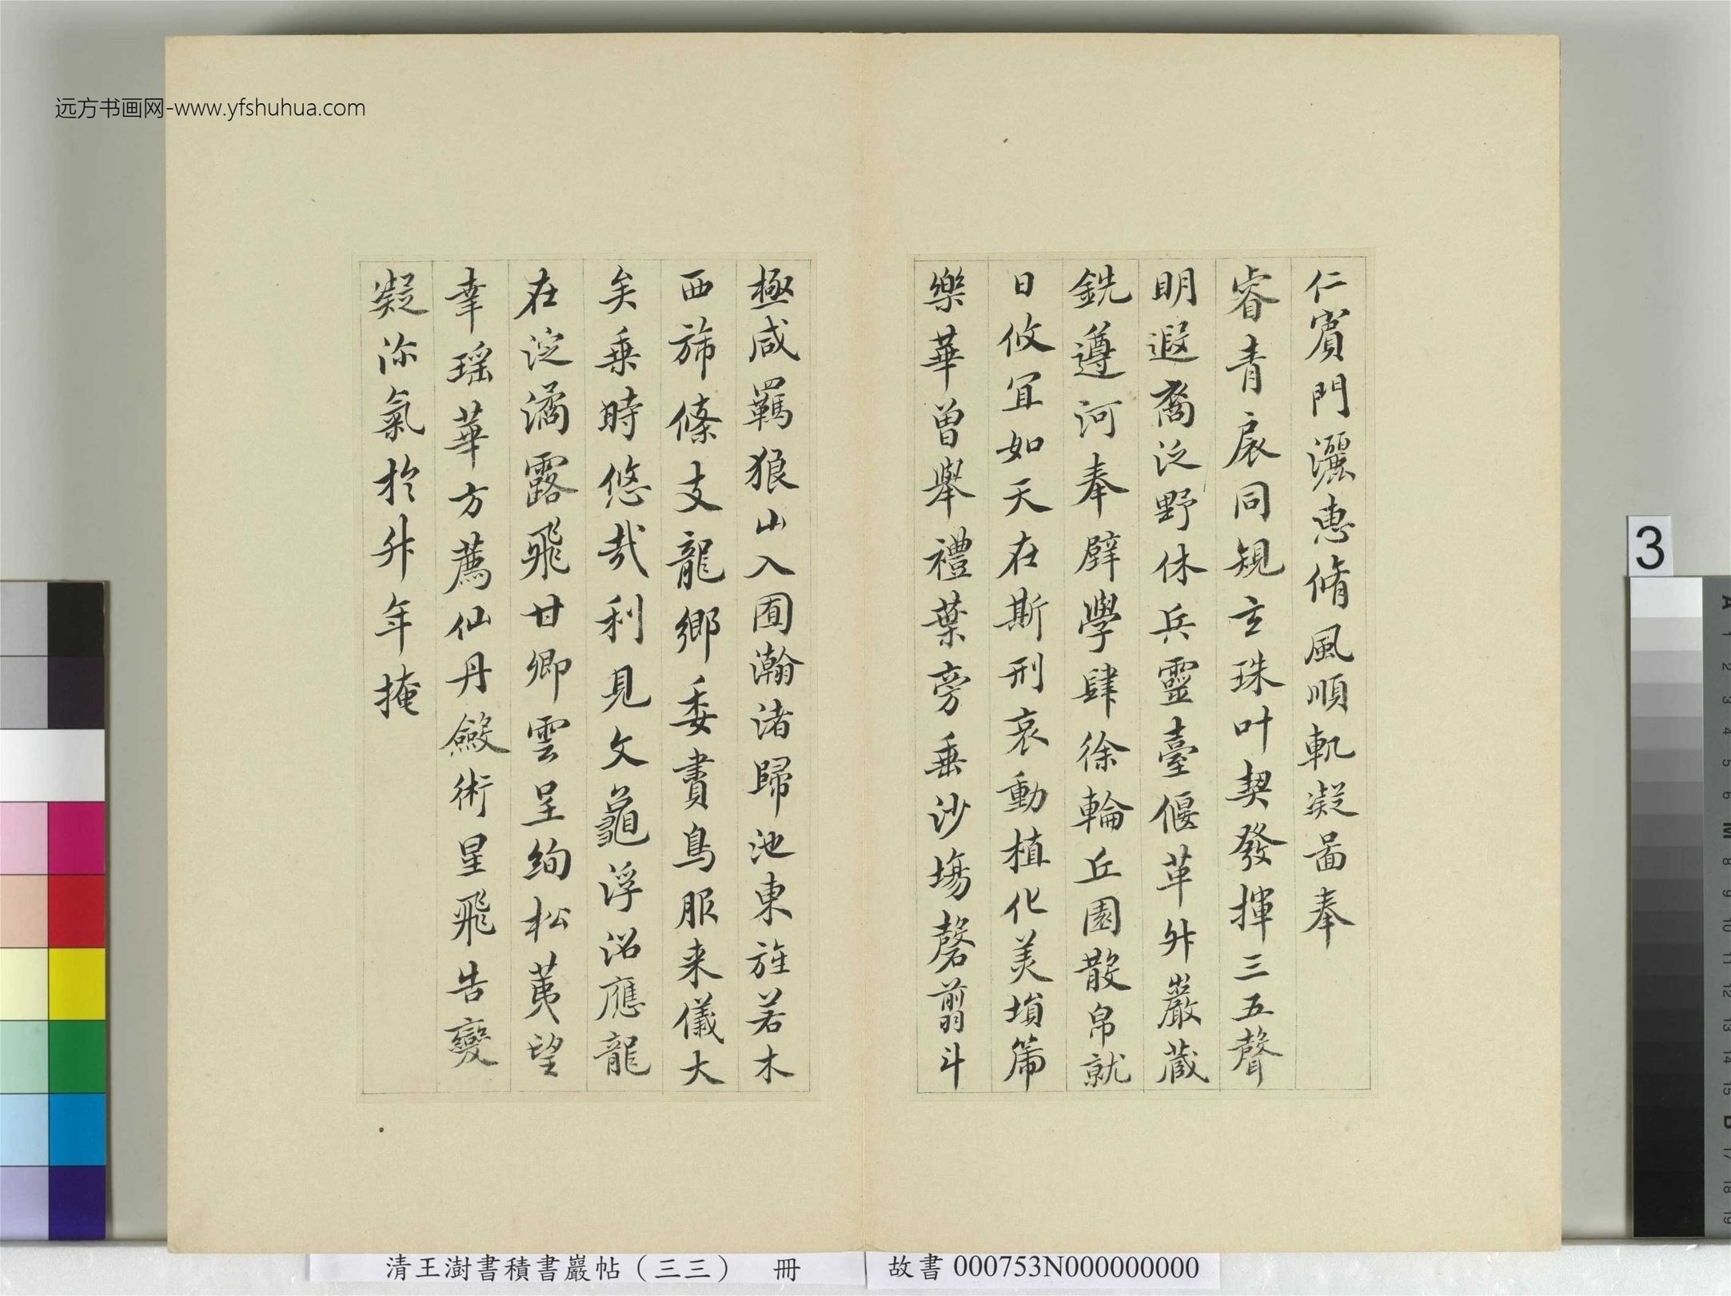 远方书画网-www.yfshuhua.com
仁賓門灑惠脩風順軌凝啚奉
睿青扆同規玄珠叶契發揮三五聲
明遐裔泛野休兵靈臺偃革升巖藏
銑遵河奉璧學肆徐輪丘園散帛就
日攸宜如天在斯刑哀動植化美塤篪
樂華曾舉禮葉旁垂沙塲罄翦斗
極咸羈狼山入囿瀚渚歸池東旌若木
西旆條支龍鄉委賮鳥服来儀大
矣乗時悠哉利見文龜浮沼應龍
在淀潏露飛甘卿雲呈絢松茰望
幸瑶華方薦仙丹斂術星飛告變
凝沴氣於升年掩
3
清王澍書積書巖帖（三三） 冊
故書 000753N000000000